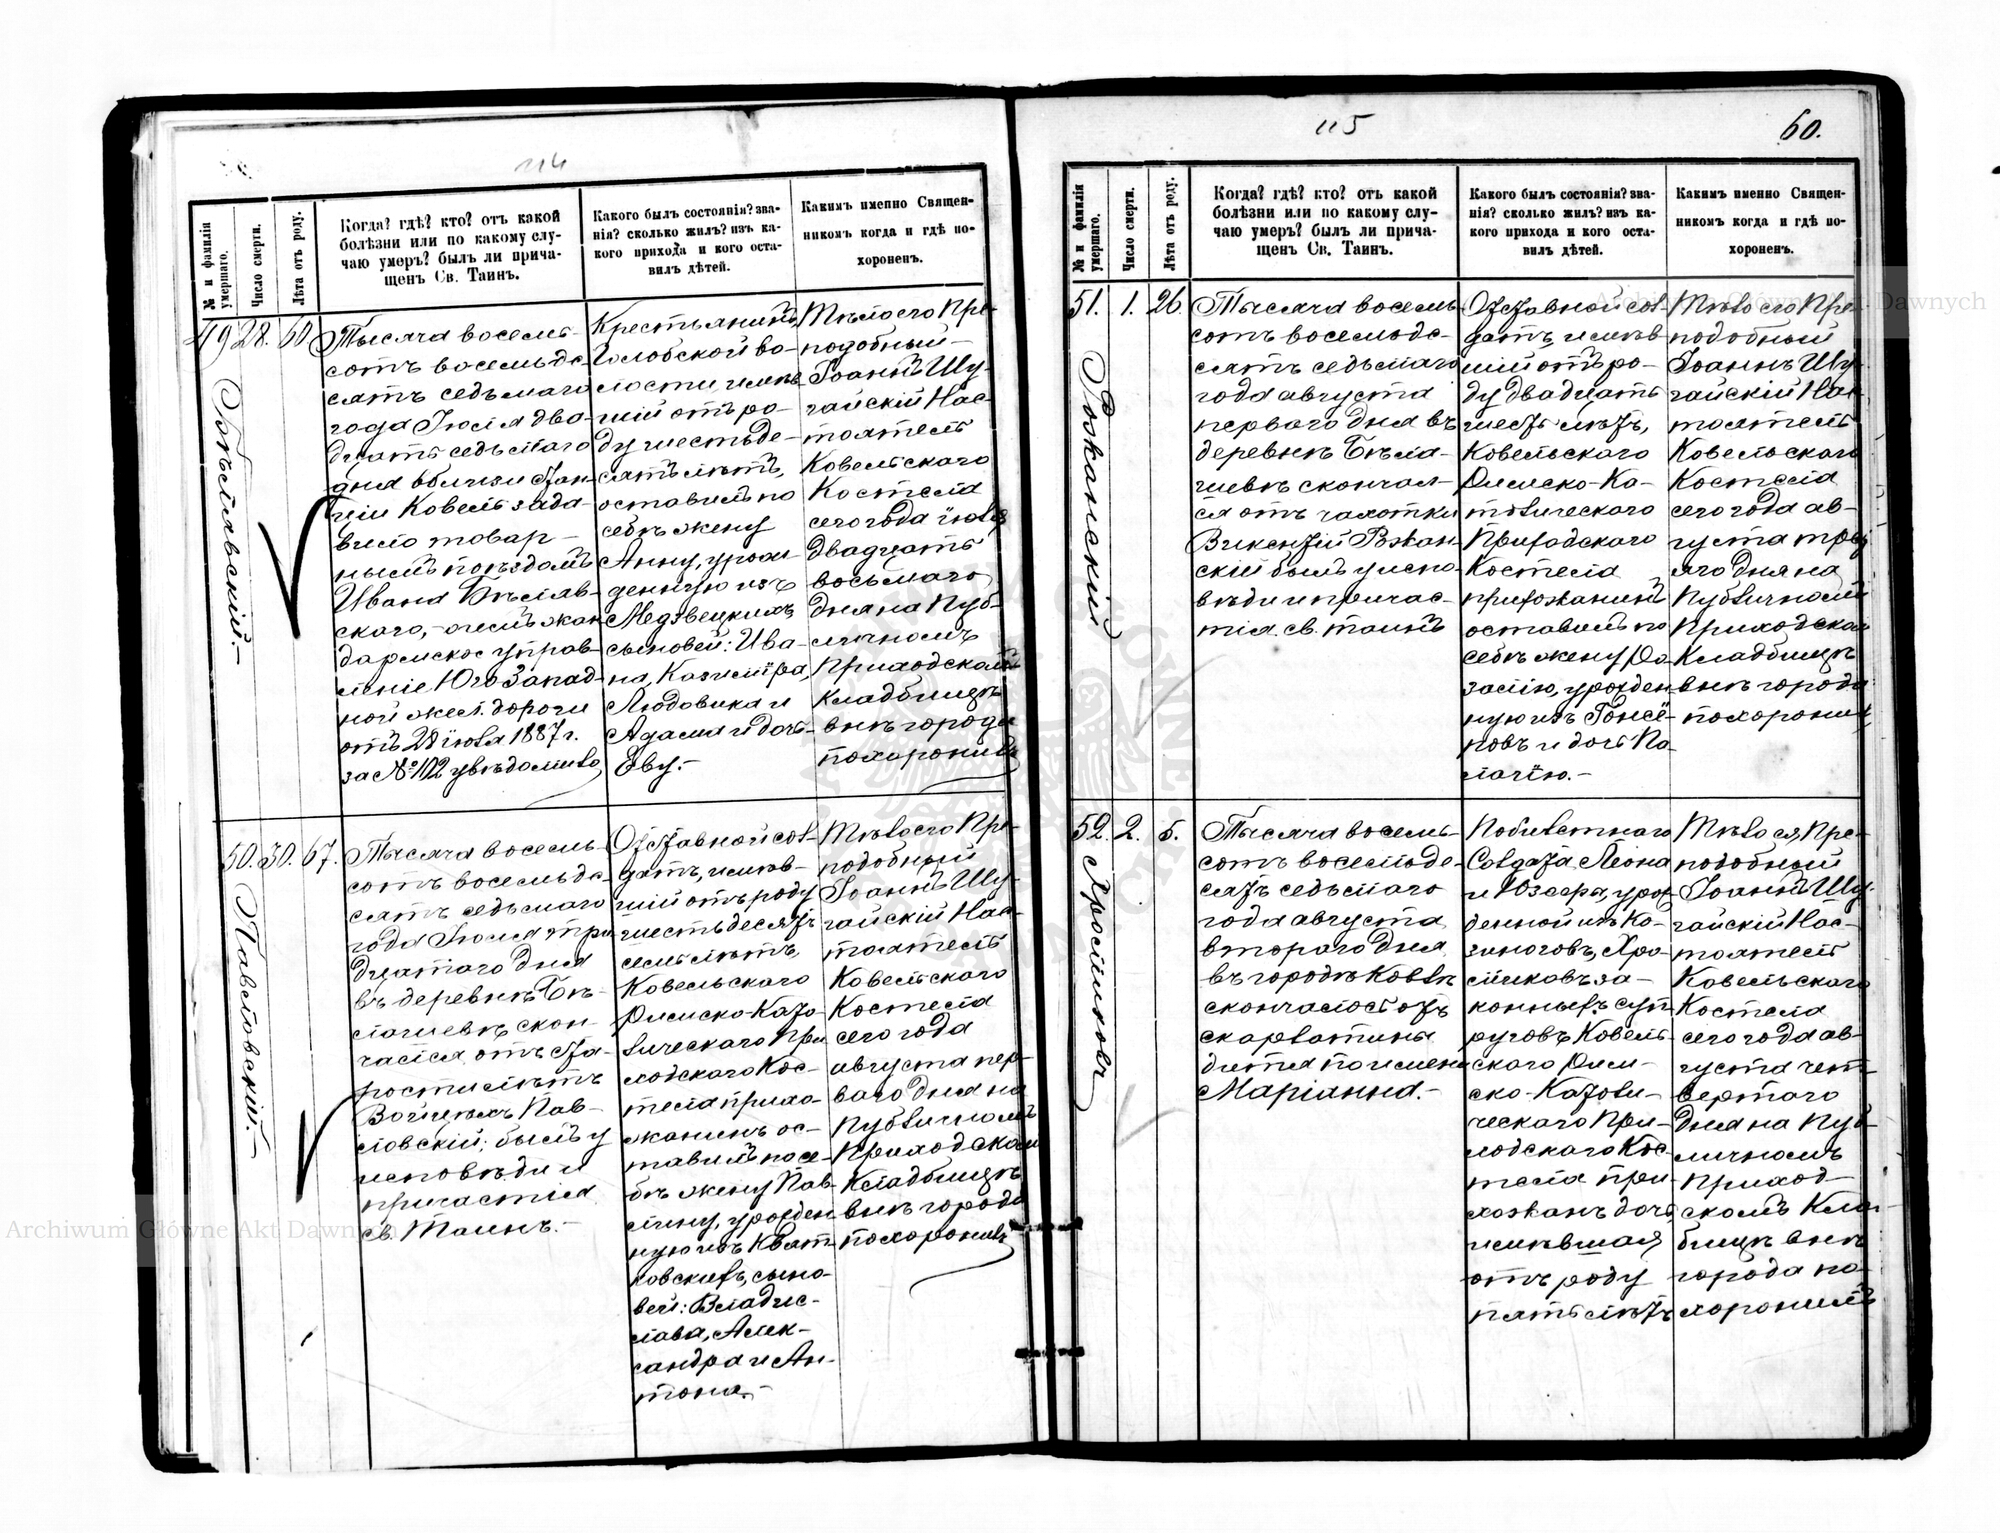 114
№ и фамилія умершаго.
Число смерти.
Лѣта отъ роду.
Когда? гдѣ? кто? отъ какой
болѣзни или по какому слу-
чаю умеръ? былъ ли прича-
щенъ Св. Таинъ.
Какого былъ состоянія? зва-
нія? сколько жилъ? изъ ка-
кого прихода и кого оста-
вилъ дѣтей.
Какимъ именно Священ-
никомъ когда и гдѣ по-
хороненъ.
49
Бѣлявскій.-
28.
60
Тысяча восемь-
сотъ восемьде-
сятъ седьмаго
года Іюля два-
дцать седьмаго
дня вблизи стан-
ціи Ковель зада-
вило товар-
нымъ поѣздомъ
Ивана Бѣляв-
скаго,-о чемъ жан
дармское управ-
леніе Юго Запад-
ной жел. дороги
отъ 28 іюля 1887 г.
за № 1102 увѣдомило
Крестьянинъ
Голобской во-
лости имѣв
шій отъ ро-
ду шестьде-
сятъ лѣтъ,
оставилъ по
себѣ жену
Анну, урож
денную изъ
Медвецкихъ
сыновей: Ива-
на, Казиміра,
Людовика и
Адама и дочь-
Еву.-
Тѣло его Пре-
подобный-
Іоаннъ Шу-
гайскій Нас-
тоятель
Ковельскаго
Костела
сего года іюля
двадцать
восьмаго
дня на Пуб-
личномъ
Приходскомъ
Кладбищѣ
внѣ города
похоронилъ
50.
Павловскій.-
30.
67.
Тысяча восемь-
сотъ восемьде-
сятъ седьмаго
года Іюля три
дцатаго дня
въ деревнѣ Бѣ-
лашевѣ скон-
чался отъ ста-
рости лѣтъ
Войцехъ Пав-
ловскій; былъ у
исповѣди и
причастія
св. Таинъ.-
Отставной сол-
датъ, имѣв-
шій отъ роду
шестьдесятъ
семь лѣтъ,
Ковельскаго
Римско-Като
лическаго При
ходскаго Кос-
тела прихо-
жанинъ ос-
тавилъ по се-
бѣ жену Пав-
лину, урожден
ную изъ Квят-
ковскихъ, сыно-
вей: Владис-
лава, Алек-
сандра и Ан-
тона.-
Тѣло его Пре-
подобный
Іоаннъ Шу-
гайскій Нас-
тоятель
Ковельскаго
Костела
сего года
августа пер-
ваго дня на
Публичномъ
Приходскомъ
Кладбищѣ
внѣ города
похоронилъ
115
60.
№ и фамилія умершаго.
Число смерти.
Лѣта отъ роду.
Когда? гдѣ? кто? отъ какой
болѣзни или по какому слу-
чаю умеръ? былъ ли прича-
щенъ Св. Таинъ.
Какого былъ состоянія? зва-
нія? сколько жилъ? изъ ка-
кого прихода и кого оста-
вилъ дѣтей.
Какимъ именно Священ-
никомъ когда и гдѣ по-
хороненъ.
51.
Рожанскій
1.
26.
Тысяча восемь
сотъ восемьде-
сятъ седьмаго
года августа
перваго дня въ
деревнѣ Бѣла-
шевѣ скончал-
ся отъ чахотки
Викентій Рожан
скій былъ у испо
вѣди и причас-
тія св. таинъ
Отставной сол-
датъ, имѣв
шій отъ ро-
ду двадцать
шесть лѣтъ,
Ковельского
Римско-Ка-
толическаго
Приходскаго
Костела
прихожанинъ
оставилъ по
себѣ жену Ро-
залію, урожден
ную изъ Гонсё-
ровъ и дочь Па-
лагію.-
Тѣло его Пре-
подобный
Іоаннъ Шу-
гайскій Нас-
тоятель
Ковельскаго
Костела
сего года ав-
густа треть
яго дня на
Публичномъ
Приходском
Кладбищѣ
внѣ города
похоронилъ
52.
Хромиковъ
2.
5.
Тысяча восемь-
сотъ восемьде-
сятъ седьмаго
года августа
второго дня
въ городѣ Ковлѣ
скончалось отъ
скарлатины
дитя по имени
Маріанна.-
Побилетнаго
Солдата Леона
и Юзефы, урож
денной изъ Ко-
зиноговъ, Хро-
миковъ за-
конныхъ суп-
руговъ Ковель-
скаго Рим-
ско-Католи-
ческаго При-
ходскаго Кос-
тела при-
хожанъ дочь
имѣвшая
отъ роду
пять лѣтъ
Тѣло ея, Пре-
подобный
Іоаннъ Шу-
гайскій Нас-
тоятель
Ковельскаго
Костела
сего года ав-
густа чет-
вертаго
дня на Пуб-
личномъ
Приход-
скомъ Клад-
бищѣ внѣ
города по-
хоронилъ
Archiwum Główne Akt Dawnych
Archiwum Główne Akt Dawnych